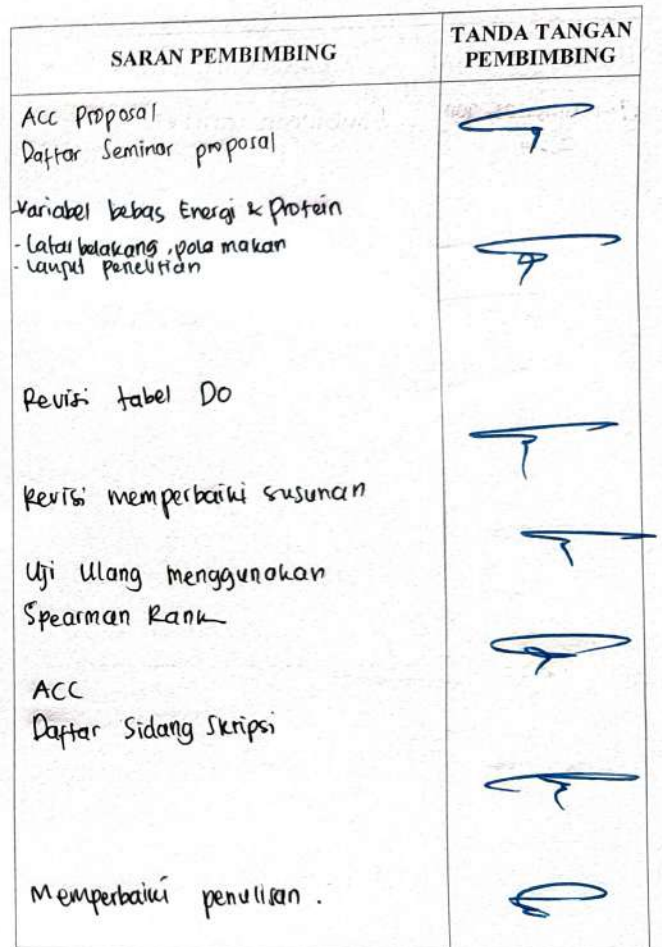 SARAN PEMBIMBING
TANDA TANGAN
PEMBIMBING
Acc Proposal
Daftar Seminar proposal
-Variabel bebas Energi & Protein
- Latar belakang, pola makan
- Lanjut penelitian
Revisi tabel DO
Revisi memperbaiki susunan
Uji Ulang menggunakan
Spearman Rank
ACC
Daftar Sidang Skripsi
Memperbaiki penulisan.